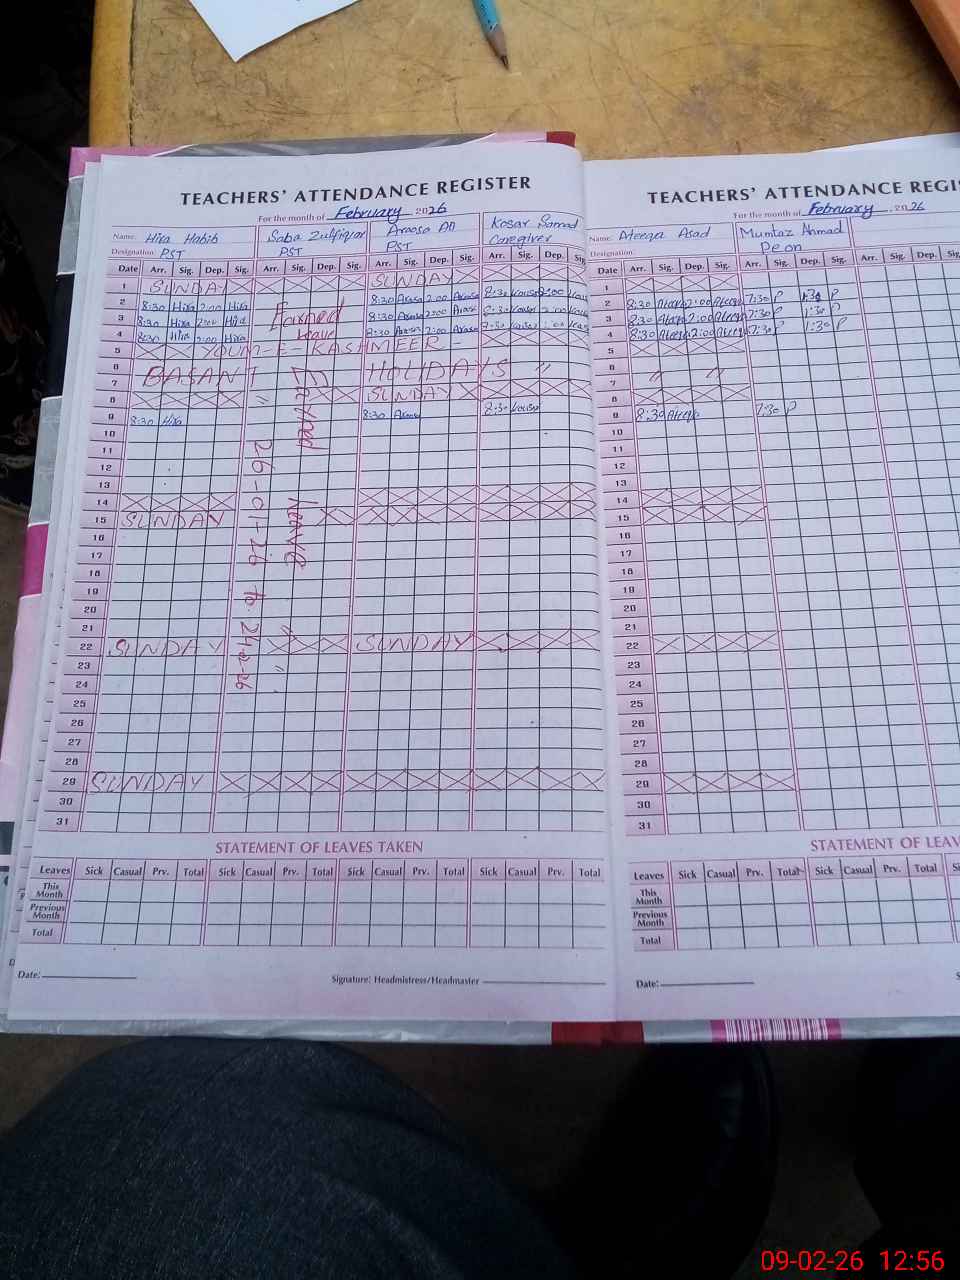 TEACHERS' ATTENDANCE REGISTER
For the month of February 2026
Name: Hira Habib Saba Zulfiqar Kosar Samad
Designation: PST PST PST Caregiver
Date Arr. Sig. Dep. Sig. Arr. Sig. Dep. Sig. Arr. Sig. Dep. Sig. Arr. Sig. Dep. Sig.
1 SUNDAY SUNDAY
2 8:30 Hira 2:00 Hira 8:30 2:00 8:30
3 8:30 Hira 2:00 Hira Earned 8:30 2:00 8:30
4 8:30 Hira 2:00 Hira Leave 8:30 2:00
5 YOUM-E-KASHMEER
6
7 BASANT HOLIDAYS "
8 " SUNDAY
9 8:30 Hira 8:30 8:30
10
11
12
13
14
15 SUNDAY
16
17
18
19
20
21
22 SUNDAY SUNDAY
23
24
25
26
27
28
29 SUNDAY
30
31
Earned Leave " "
26-01-26 to
STATEMENT OF LEAVES TAKEN
Leaves Sick Casual Prv. Total Sick Casual Prv. Total Sick Casual Prv. Total Sick Casual Prv. Total
This Month
Previous Month
Total
Date:
Signature: Headmistress/Headmaster
TEACHERS' ATTENDANCE REGI
For the month of February 2026
Name: Ateeqa Asad Mumtaz Ahmad
Designation: Peon
Date Arr. Sig. Dep. Sig. Arr. Sig. Dep. Sig. Arr. Sig. Dep.
1
2 8:30 Ateeqa 2:00 Ateeqa 7:30 P 1:30 P
3 8:30 Ateeqa 2:00 Ateeqa 7:30 P 1:30 P
4 8:30 Ateeqa 2:00 Ateeqa 7:30 P 1:30 P
5
6
7 " "
8
9 8:30 Ateeqa 7:30 P
10
11
12
13
14
15
16
17
18
19
20
21
22
23
24
25
26
27
28
29
30
31
STATEMENT OF LEAV
Leaves Sick Casual Prv. Total Sick Casual Prv. Total
This Month
Previous Month
Total
Date:
09-02-26 12:56